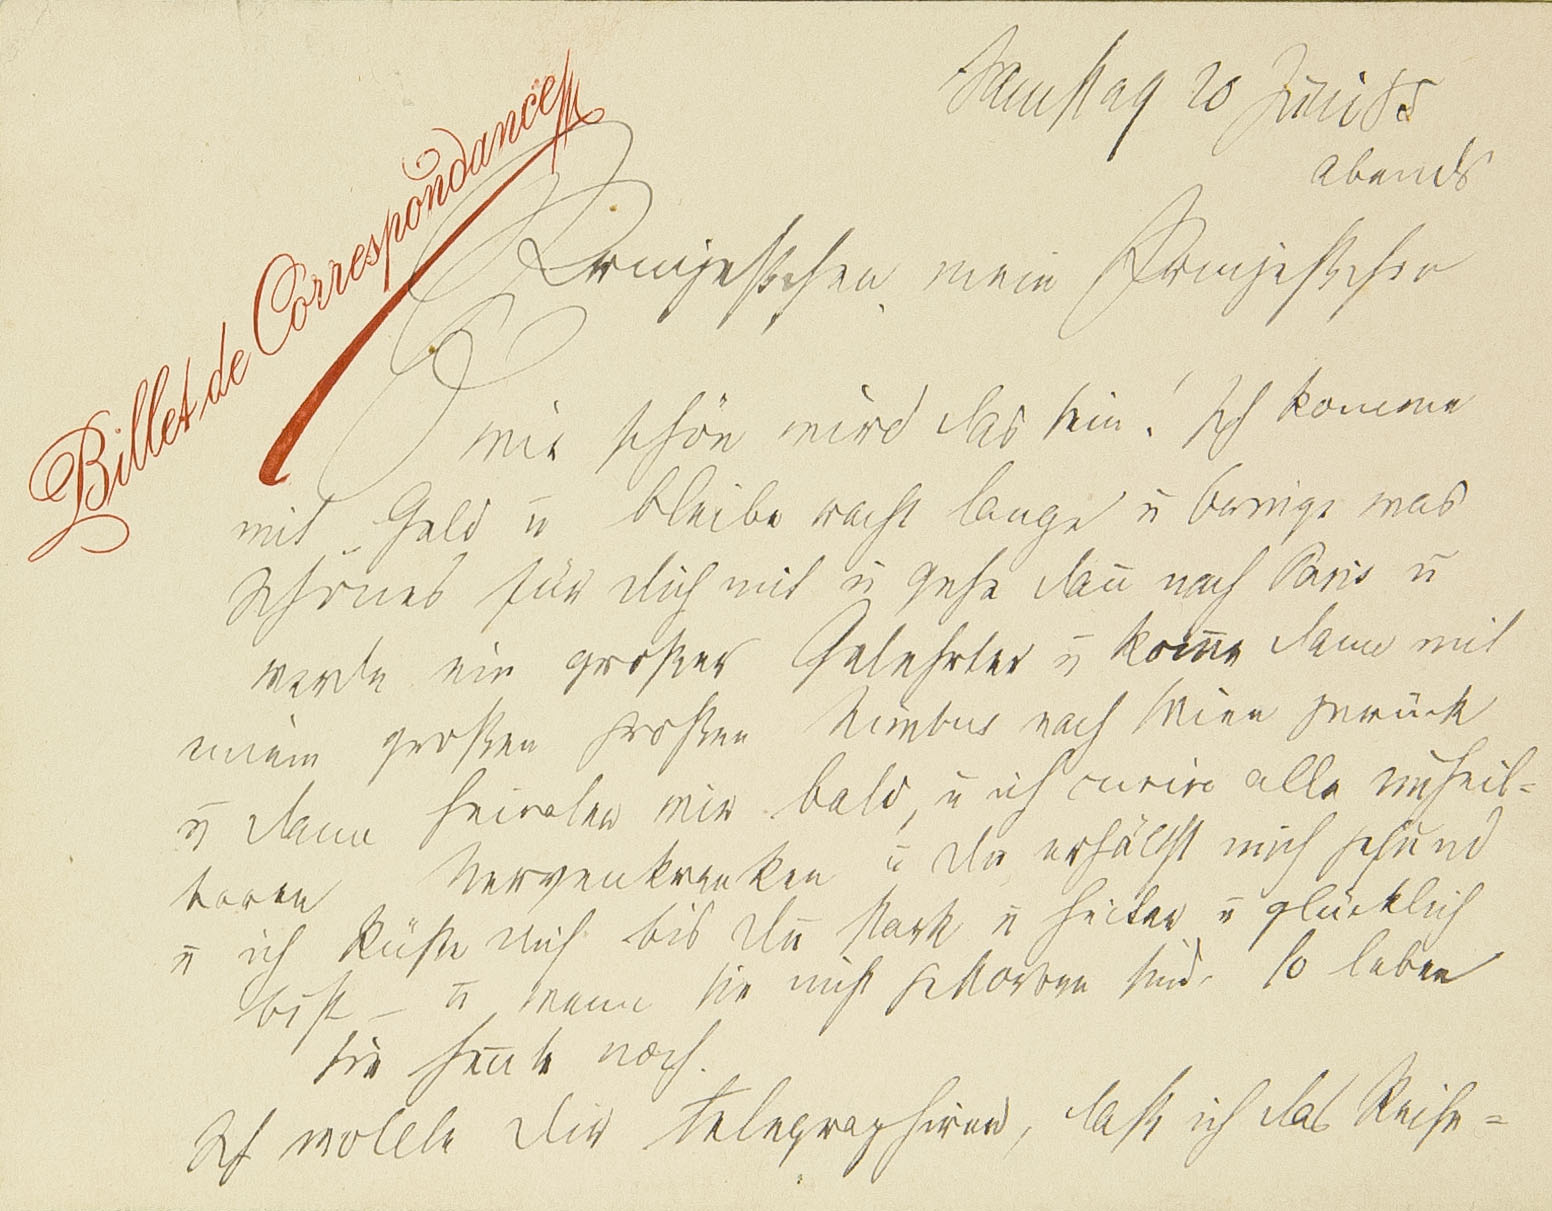 Billet de Correspondance
Samstag 20 Juni 85
abends
Prinzeßchen, mein Prinzeßchen
O wie schön wird das sein! Ich komme
mit Geld u bleibe recht lange u bringe was
Schönes für dich mit u gehe dan̄ nach Paris u
werde ein großer Gelehrter u kom̄e dann mit
einem großen großen Nimbus nach Wien zurück
u dann heiraten wir bald, u ich curire alle unheil-
baren Nervenkranken u du erhältst mich gesund
u ich küße dich bis du stark u heiter u glücklich
bist – u wenn sie nicht gestorben sind, so leben
sie heute noch.
Ich wollte dir telegraphiren, daß ich das Reise-